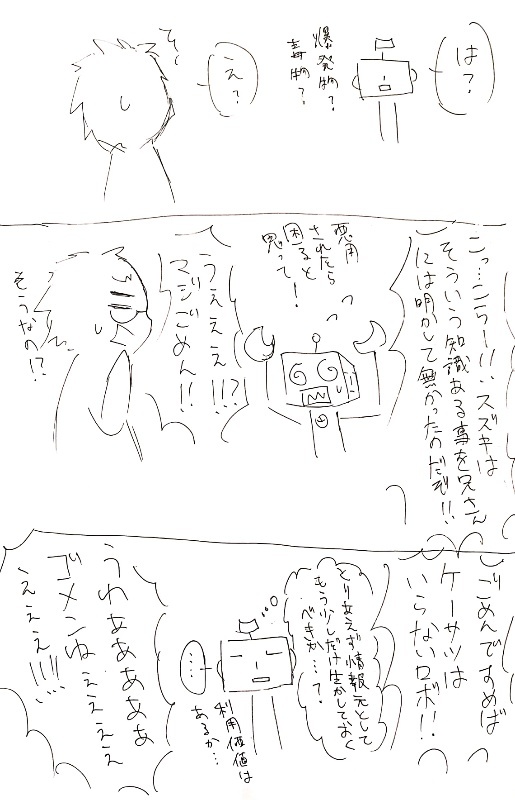 は？
爆発物？
毒物？
え？
こっ…こらー！！！スズキは
そういう知識ある事を兄さん
には明かして無かったのだぞ！！
悪用
されたら
困ると
思って！
うぇぇぇぇ！！？
マジごめん！！
そうなの！？
ごめんですめば
ケーサツは
いらないロボ！！
とりあえず情報元として
もう少しだけ生かしておく
べきか…？
利用価値は
あるか…
……
うわぁぁぁぁぁ
ゴメンねぇぇぇぇ
ぇぇぇ！！！